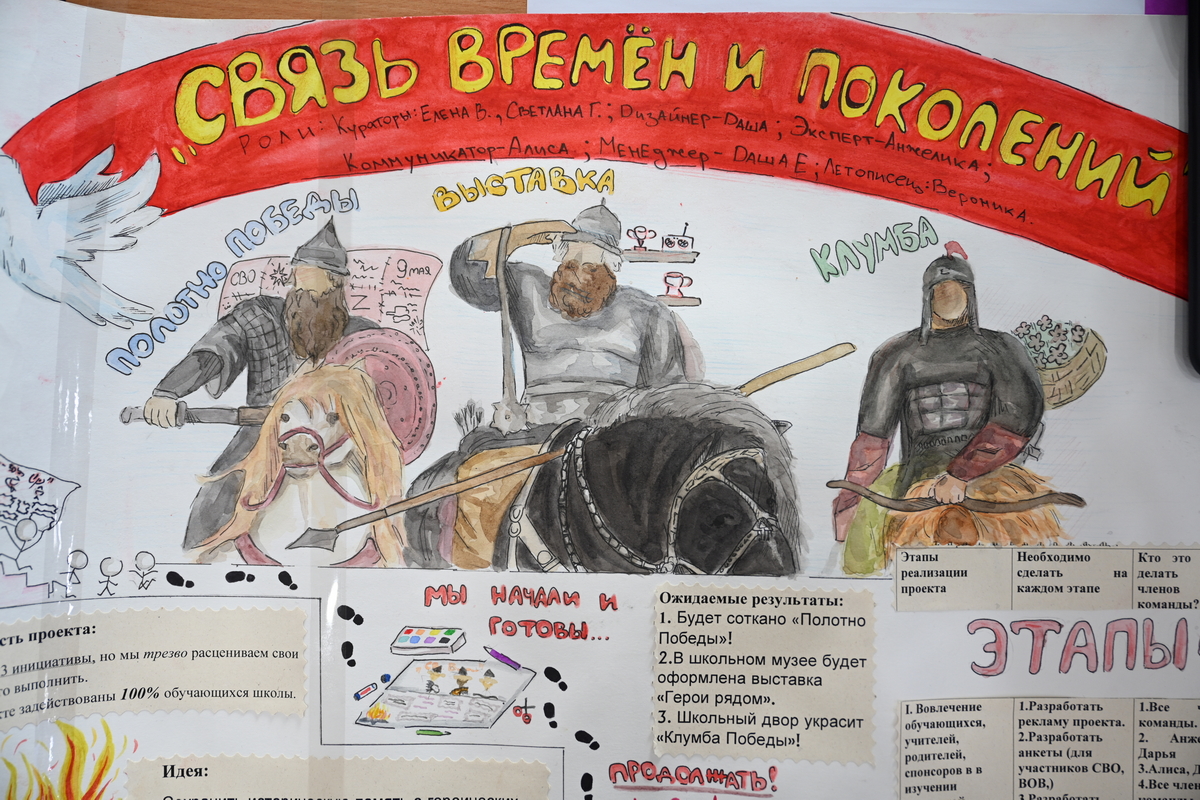 „СВЯЗЬ ВРЕМЁН И ПОКОЛЕНИЙ"
Роли: Кураторы: Елена В., Светлана Г.; Дизайнер-Даша; Эксперт-Анжелика;
Коммуникатор-Алиса.; Менеджер- Даша Е; Летописец: Вероника.
ПОЛОТНО ПОБЕДЫ
ВЫСТАВКА
КЛУМБА
СВО
9 МАЯ
Z
МЫ НАЧАЛИ И
ГОТОВЫ...
ПРОДОЛЖАТЬ!
ость проекта:
3 инициативы, но мы трезво расцениваем свои
о выполнить.
кте задействованы 100% обучающихся школы.
Идея:
Сохранить историческую память о героических
Ожидаемые результаты:
1. Будет соткано «Полотно
Победы»!
2.В школьном музее будет
оформлена выставка
«Герои рядом».
3. Школьный двор украсит
«Клумба Победы»!
Этапы
реализации
проекта
Необходимо
сделать на
каждом этапе
Кто это
делать
членов
команды?
ЭТАПЫ
1. Вовлечение
обучающихся,
учителей,
родителей,
спонсоров в в
изучении
1.Разработать
рекламу проекта.
2.Разработать
анкеты (для
участников СВО,
ВОВ,)
3.Разработать
1.Все
команды.
2. Анже
Дарья
3.Алиса, Д
4.Все член